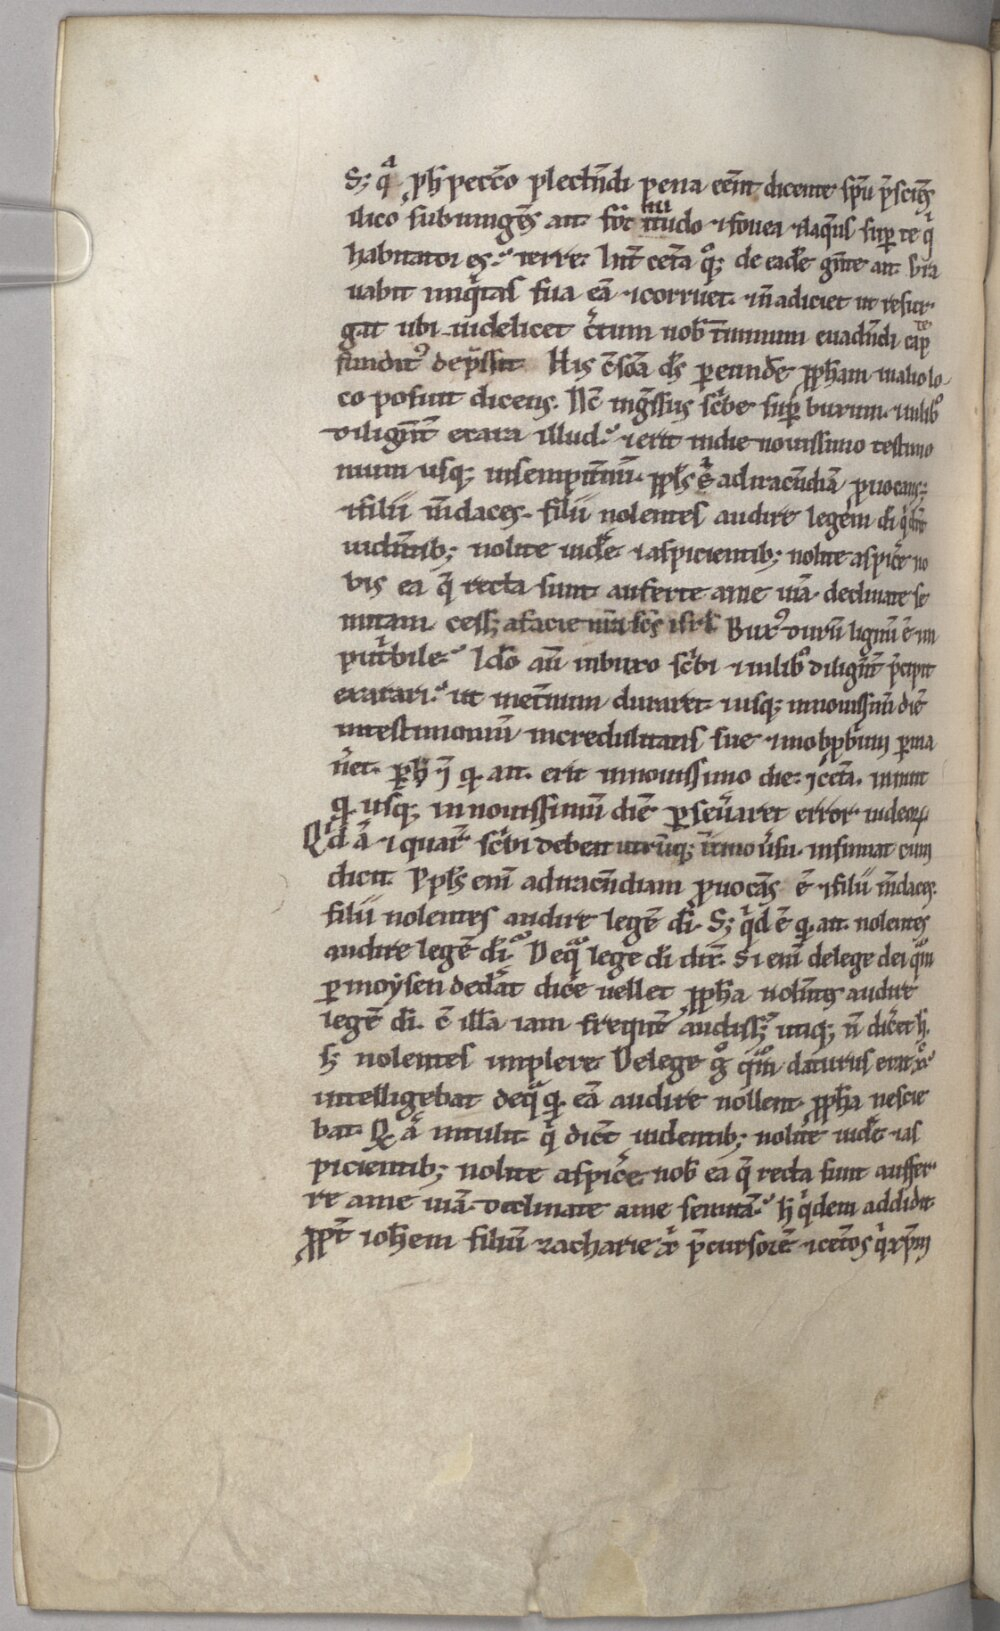 S; qͣ ꝓh̄ pecc̄o plectn̄di pena eēnt dicente sp̄u p̄sciēs
ilico subiungēs ait. for mido ⁊ fouea ⁊ laqūs sup te q̇
habitator es terre. Int̄ cet̄a qͦꝫ de eadē gn̄te ait
uabit iniq̇tas sua eā ⁊ corruet. ⁊ n̄ adiciet ut resur
gat ubi uidelicet c̄tum nob̄ t̄minum euadn̄di
funditꝰ dep̄ssit. His c̄sonā d̄s pereundē ꝓph̄am in alio lo
co posuit dicens. Nc̄ ingr̄ssus sc̄be sup buxum. ⁊ in libͦ
diligent̄ exara illud. ⁊ erit in die nouissimo testimo
nium usqꝫ in sempit̄nū. ppl̄s ē ad iracn̄diā ꝓuocans;
⁊ filii m̄daces. filii nolentes audire legem dī q̇ dn̄t
uidn̄tibꝫ nolite uidē ⁊ aspicientibꝫ nolite aspic̄e no
bis ea q̄ recta sunt. auferte a me uiā. declinate se
mitam. cessꝫ a facie n̄ra sc̄s isrl̄. Buxꝰ durū lignū ē ⁊ in
put̄bile. Ido̅ aū in buxo sc̄bi ⁊ in libͦ diligent̄ p̄cipit
exarari. ut in et̄num duraret. ⁊ usqꝫ in nouissimū diē
in testimoniū incredulitatis sue ⁊ in obꝓbrium perma
n̄et. ait. erit in nouissimo die. ⁊ cet̄a. innuit
usqꝫ in nouissimū diē perseu̅aret error iudeoꝝ.
Qd̄ ā ⁊ quar̄ sc̄bi debeat utrūqꝫ insinuat cum
dicit. Ppl̄s eni̅ ad iracn̄diam ꝓuocās ē ⁊ filii m̄daces.
filii nolentes audire legē dī. S; q̇d ē ait. nolentes
audire legē dī. De qͣ lege dī dic̄. Si eni̅ de lege dei qͣm
per moysen ded̄at dic̄e uellet ꝓph̄a nolentes audire
legē dī. c̄ illā iam frequent̄ audissꝫ utiqꝫ n̄ dic̄et h̄.
sꝫ nolentes implere. De lege gͦ qͣm daturus erat
intelligebat de qͣ eā audire nollent ꝓph̄a nescie
bat. intulit. q̇ dicn̄t uidentibꝫ nolite uidē ⁊ as
picientibꝫ nolite aspic̄e nob̄ ea q̄ recta sunt auffer
re a me uiā. declinate a me semitā. h̄ q̇dem addidit
ꝓpt̄ ioh̄em filiū zacharie xp̄i p̄cursorē ⁊ cet̄os q̇ xp̄m